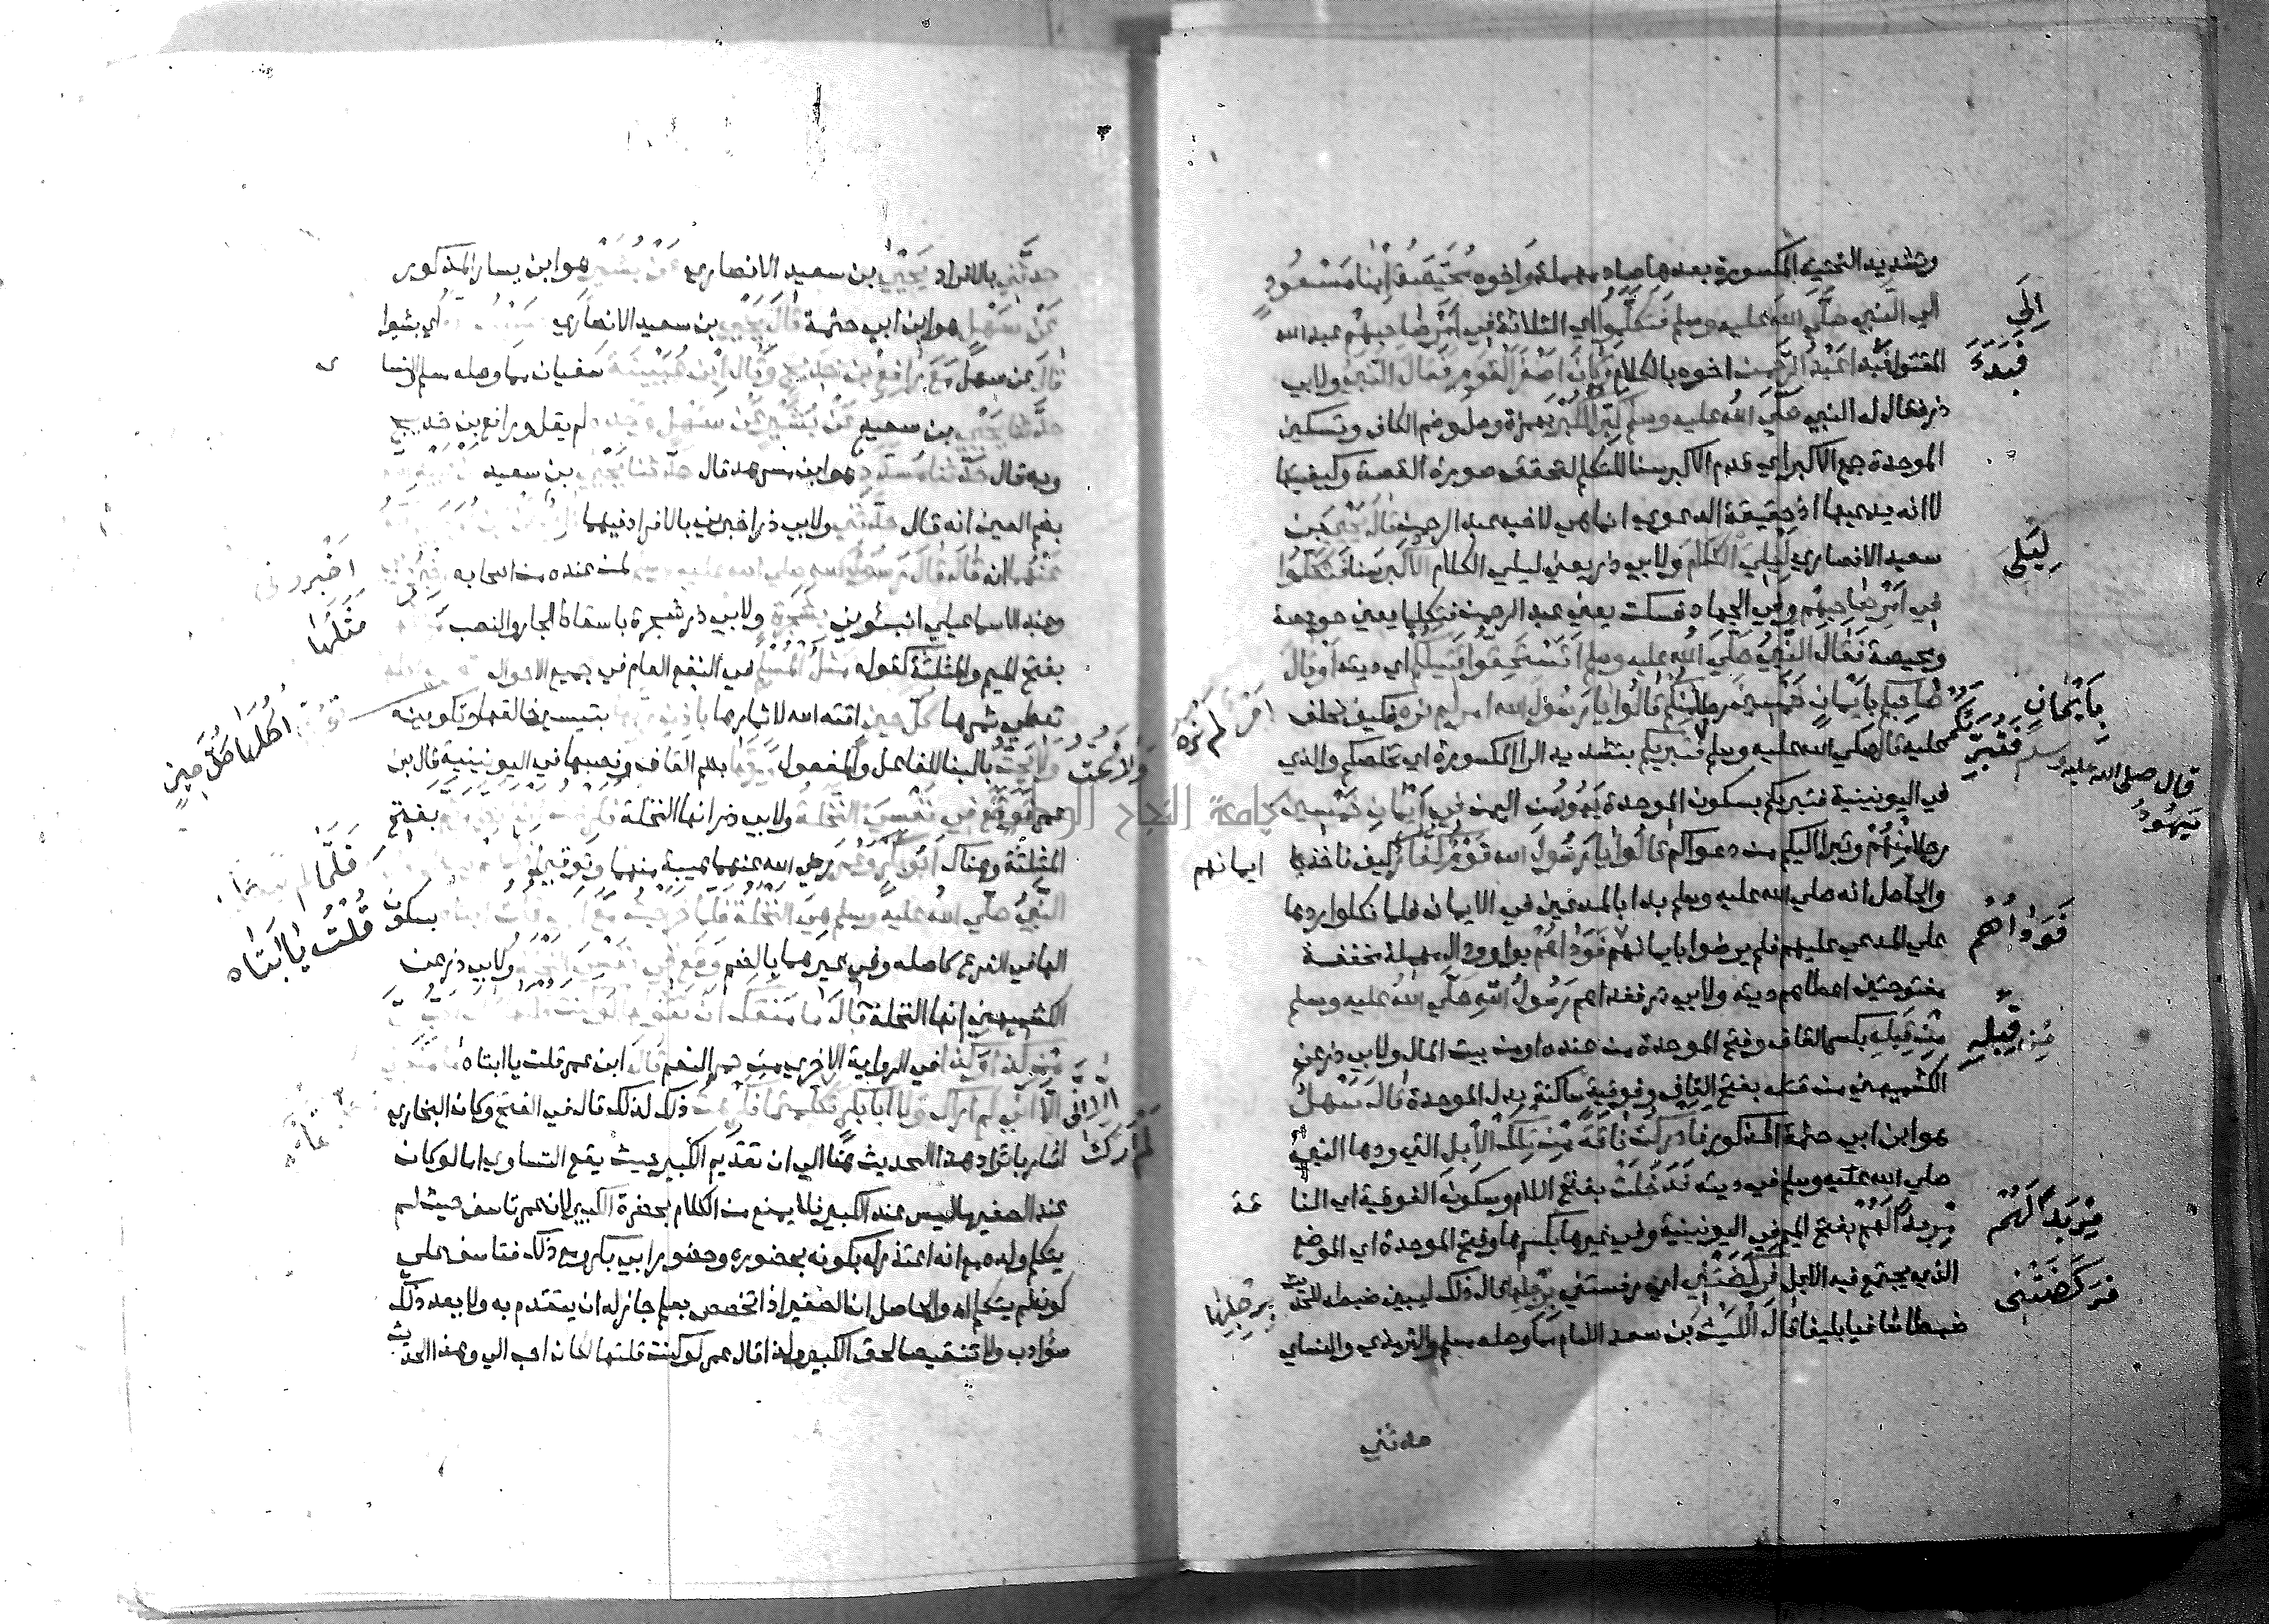 وتشديد التحتية المكسورة بعدها صاد مهملة واخوه مُحَيِّصَة اِبْنَا مَسْعُودٍ
الي النبي صَلَّى اللهُ عليه وسلم فَتَكَلَّمُوا اي الثلاثة في اَمْرِ صَاحِبِهِمْ عبد الله
المقتول فَبَدَأ عَبْدُ الرَّحْمنِ اخوه بالكلام وَكَانَ اَصْغَرَ القَوْمِ فَقَالَ النَّبِيُّ ولابي
ذر فقال له النبي صَلَّى اللهُ عليه وسلم كَبِّرِ الكُبْرَ بهمزة وصل وضم الكاف وتسكين
الموحدة جمع الاكبر اي قدم الاكبر سنا للتكلم لتحقق صورة القصة وكيفيتها
لا انه يدعيها اذ حقيقة الدعوي انما هي لاخيه عبد الرحمن قالَ يَحْيى بن
سعيد الانصاري لِيَلِيَ الكَلَامَ ولابي ذر يعني ليلي الكلام الاَكْبَرُ سنا فَتَكَلَّمُوا
في اَمْرِ صَاحِبِهِمْ وفي الجهاد فسكت يعني عبد الرحمن فتكلما يعني حويصة
ومحيصة فَقَالَ النَّبِيُّ صَلَّى اللهُ عليه وسلم اَتَسْتَحِقُّوا قَتِيلَكُمْ اي ديته اَوْ قَالَ
صَاحِبَكُمْ بِاَيْمَانِ خَمْسِينَ مِنْكُمْ قَالُوا يَا رَسُولَ الله امر لم نره فكيف نحلف
عليه قال صَلَّى الله عليه وسلم فتبريكم بتشديد الرا المكسورة اي تخلصكم والذي
في اليونينية فتبريكم بسكون الموحدة يَهُودُ من اليمن في اَيْمَانِ خَمْسِينَ
رجلا مِنْهُمْ وتبرا اليكم من دعواكم قَالُوا يَا رَسُولَ الله قَوْمٌ كُفَّارٌ كيف ناخذ ايمانهم
والحاصل انه صلي الله عليه وسلم بدا بالمدعين في الايمان فلما نكلوا ردها
علي المدعي عليهم فلم يرضوا بايمانهم فَوَدَاهُمْ بواو ودال مهملة مخففة
مفتوحتين اعطاهم ديته ولابي ذر ففداهم رَسُولُ اللهِ صَلَّى اللهُ عليه وسلم
مِنْ قِبَلِهِ بكسر القاف وفتح الموحدة من عنده او من بيت المال ولابي ذر عن
الكشميهني من قتله بفتح القاف وفوقية ساكنة بدل الموحدة قالَ سَهْلٌ
هو ابن ابي حثمة المذكور فَاَدْرَكْتُ نَاقَةً مِنْ تِلْكَ الاِبِلِ التي ودها النبي
صلي الله عليه وسلم في ديته فَدَخَلَتْ بفتح اللام وسكون الفوقية اي الناقة
مِرْبَدًا لَهُمْ بفتح الميم في اليونينية وفي غيرها بكسرها وفتح الموحدة اي الموضع
الذي يجتمع فيه الابل فَرَكَضَتْنِي اي رفستني بِرِجْلِهَا قال ذلك ليبين ضبطه للحديث
ضبطا شافيا بليغا قَالَ اللَّيْثُ بن سعد الامام مما وصله مسلم والترمذي والنساي
حدثني
اِلَى
فَبَدَأَ
لِيَلِيَ
بِاَيْمَانِ
فَتُبَرِّيكُمْ
قال صلى الله عليه وسلم
يَهُودُ
لم نره
فَوَدَاهُمْ
مِنْ قِبَلِهِ
مِرْبَدًا لَهُمْ
فَرَكَضَتْنِي
بِرِجْلِهَا
جامعة النجاح الوطنية
حدثني بالافراد يَحْيَى بن سعيد الانصاري عَنْ بُشَيْرٍ هو ابن يسار المذكور
عَنْ سَهْلٍ هو ابن ابي حثمة قَالَ يَحْيَى بن سعيد الانصاري اي بشيرا
قَالَ عن سهل مَعَ رَافِعِ بْنِ خَدِيجٍ وَقَالَ ابْنُ عُيَيْنَةَ سفيان مما وصله مسلم والنسا ي
حَدَّثَنَا يَحْيَى بن سعيد عَنْ بُشَيْرٍ عَنْ سَهْلٍ وحده لم يقل ورافع بن خديج
وبه قال حَدَّثَنَا مُسَدَّدٌ هو ابن مسرهد قال حَدَّثَنَا يَحْيَى بن سعيد
بضم العين انه قال حَدَّثَنِي ولابي ذر اخبرني بالافراد فيهما
عَنْهُمَا انه قَالَ قَالَ رَسُولُ الله صلي الله عليه وسلم لمن عنده من اصحابه
وعند الاسماعيلي انبئوني بِشَجَرَةٍ ولابي ذر شجرة باسقاط الجار والنصب
بفتح الميم والمثلثة كقوله مَثَلُ المُسْلِمِ في النفع العام في جميع الاحوال
تعطي ثمرها كُلَّ حِينٍ اقته الله لاثمارها بِاِذْنِ رَبِّهَا بتيسير خالقها وتكوينه
وَلَا تَحُتُّ بالبنا للفاعل والمفعول وَرَقَهَا بضم القاف ونصبها في اليونينية قال ابن
عمر فَوَقَعَ فِي نَفْسِي النَّخْلَةُ ولابي ذر انها النخلة بفتح
المثلثة وهناك اَبُو بَكْرٍ وَعُمَرُ رضي الله عنهما هيبة منهما وتوقيرا
النَّبِيُّ صَلَّى اللهُ عليه وسلم هِيَ النَّخْلَةُ فَلَمَّا خَرَجْتُ مَعَ بسكون
الها في الفرع كاصله وفي غيرهما بالضم وَقَعَ فِي نَفْسِي ولابي ذر عن
الكشميهني انها النخلة قَالَ مَا مَنَعَكَ اَنْ تَقُولَهَا
كَذَا وَكَذَا في الرواية الاخري من حمر النعم قَالَ ابن عمر قلت يا ابتاه
اِلَّا اَنِّي لَمْ اَرَكَ وَلَا اَبَا بَكْرٍ تَكَلَّمْتُمَا فَكَرِهْتُ ذلك لذلك قال في الفتح وكان البخاري
اشار بايراد هذا الحديث هنا الي ان تقديم الكبير حيث يقع التساوي اما لو كان
عند الصغير ما ليس عند الكبير فلا يمنع من الكلام بحضرة الكبير لان عمر تاسف حيث لم
يتكلم ولده مع انه اعتذر له بكونه بحضوره وحضور ابي بكر ومع ذلك فتاسف علي
كونه لم يتكلم اه والحاصل ان الصغير اذا تخصص بعلم جاز له ان يتقدم به ولا يعد ذلك
سؤ ادب ولا تنقيصا لحق الكبير ولذا قال عمر لو كنت قلتها كان احب الي وهذا الحديث
اَخْبِرُونِي
مَثَلُهَا
اُكُلَهَا كُلَّ حِينٍ
وَلَا تَحُتُّ
فَلَمَّا
قُلْتُ يَا اَبَتَاهُ
اِلَّا اَنِّي
لَمْ اَرَكَ